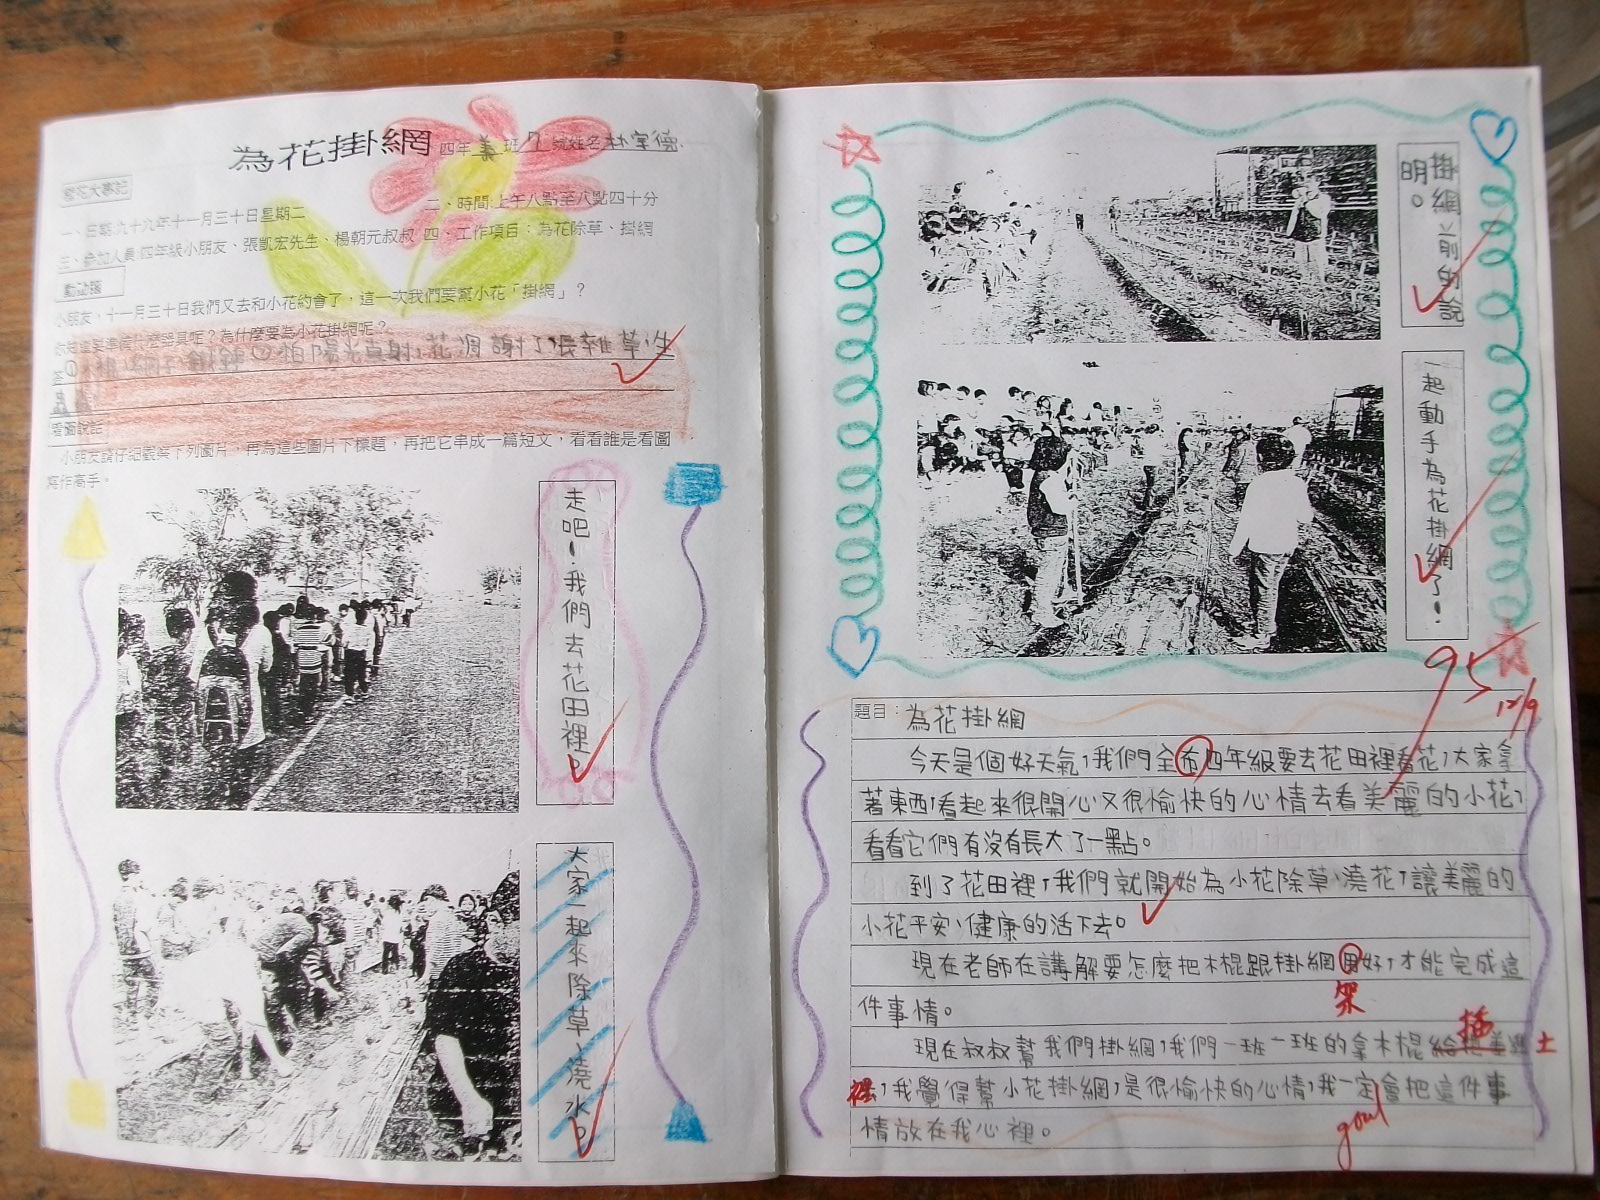 為花掛網
四年美班 號姓名林
愛花大事記
一、日期:九十九年十一月三十日星期二
二、時間:上午八點至八點四十分
三、參加人員:四年級小朋友、張凱宏先生、楊朝元叔叔
四、工作項目:為花除草、掛網
動動腦
小朋友,十一月三十日我們又去和小花約會了,這一次我們要幫小花「掛網」?
你知道要準備什麼器具呢?為什麼要為小花掛網呢?
答
怕陽光直射,花凋謝了長雜草、生
蟲
看圖說話
小朋友請仔細觀察下列圖片,再為這些圖片下標題,再把它串成一篇短文,看看誰是看圖
寫作高手。
走吧!我們去花田裡。
大家一起來除草、澆水。
掛網前的說
明。
一起動手為花掛網了!
95
12/9
題目:為花掛網
今天是個好天氣,我們全布四年級要去花田裡看花,大家拿
著東西,看起來很開心又很愉快的心情去看美麗的小花,
看看它們有沒有長大了一點。
到了花田裡,我們就開始為小花除草、澆花,讓美麗的
小花平安、健康的活下去。
現在老師在講解要怎麼把木棍跟掛網用好,才能完成這
架
件事情。
插
現在叔叔幫我們掛網,我們一班一班的拿木棍 土
裡,我覺得幫小花掛網,是很愉快的心情,我一定會把這件事
情放在我心裡。
good